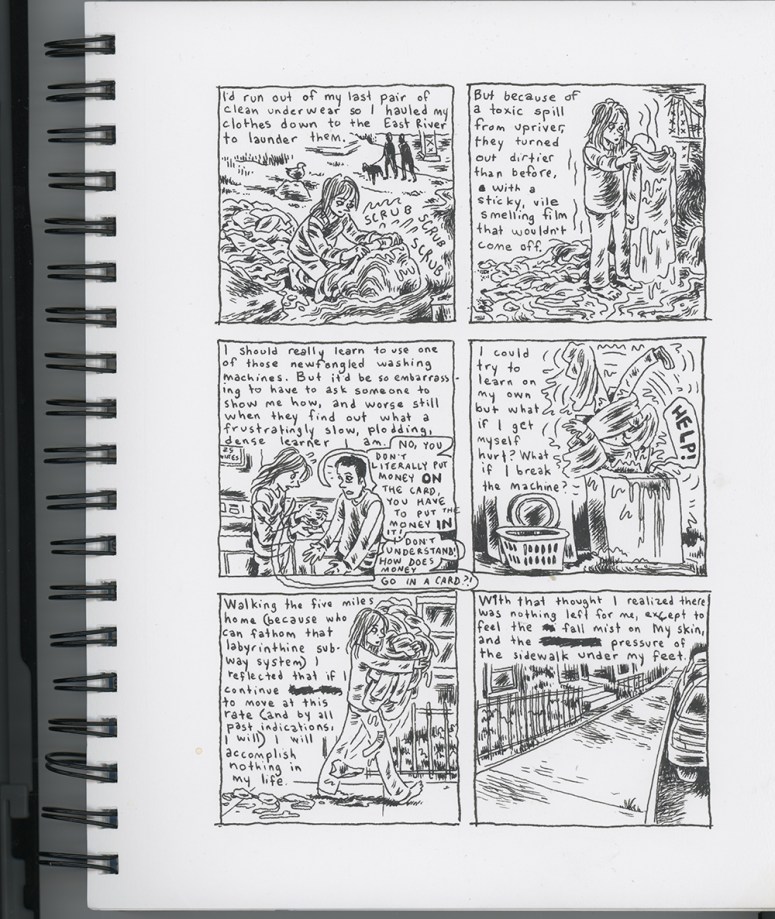 I'd run out of my last pair of
clean underwear so I hauled my
clothes down to the East River
to launder them.
SCRUB SCRUB
SCRUB
But because of
a toxic spill
from upriver,
they turned
out dirtier
than before,
with a
sticky, vile
smelling film
that wouldn't
come off.
I should really learn to use one
of those newfangled washing
machines. But it'd be so embarrass-
ing to have to ask someone to
show me how, and worse still
when they find out what a
frustratingly slow, plodding,
dense learner I am.
25
MINUTES
NO, YOU
DON'T
LITERALLY PUT
MONEY ON
THE CARD,
YOU HAVE
TO PUT THE
MONEY IN
IT!
I DON'T
UNDERSTAND!
HOW DOES
MONEY
GO IN A CARD?!
I could
try to
learn on
my own
but what
if I get
myself
hurt? What
if I break
the machine?
HELP!
Walking the five miles
home (because who
can fathom that
labyrinthine sub-
way system) I
reflected that if I
continue
to move at this
rate (and by all
past indications,
I will) I will
accomplish
nothing in
my life.
With that thought I realized there
was nothing left for me, except to
feel the fall mist on my skin,
and the pressure of
the sidewalk under my feet.